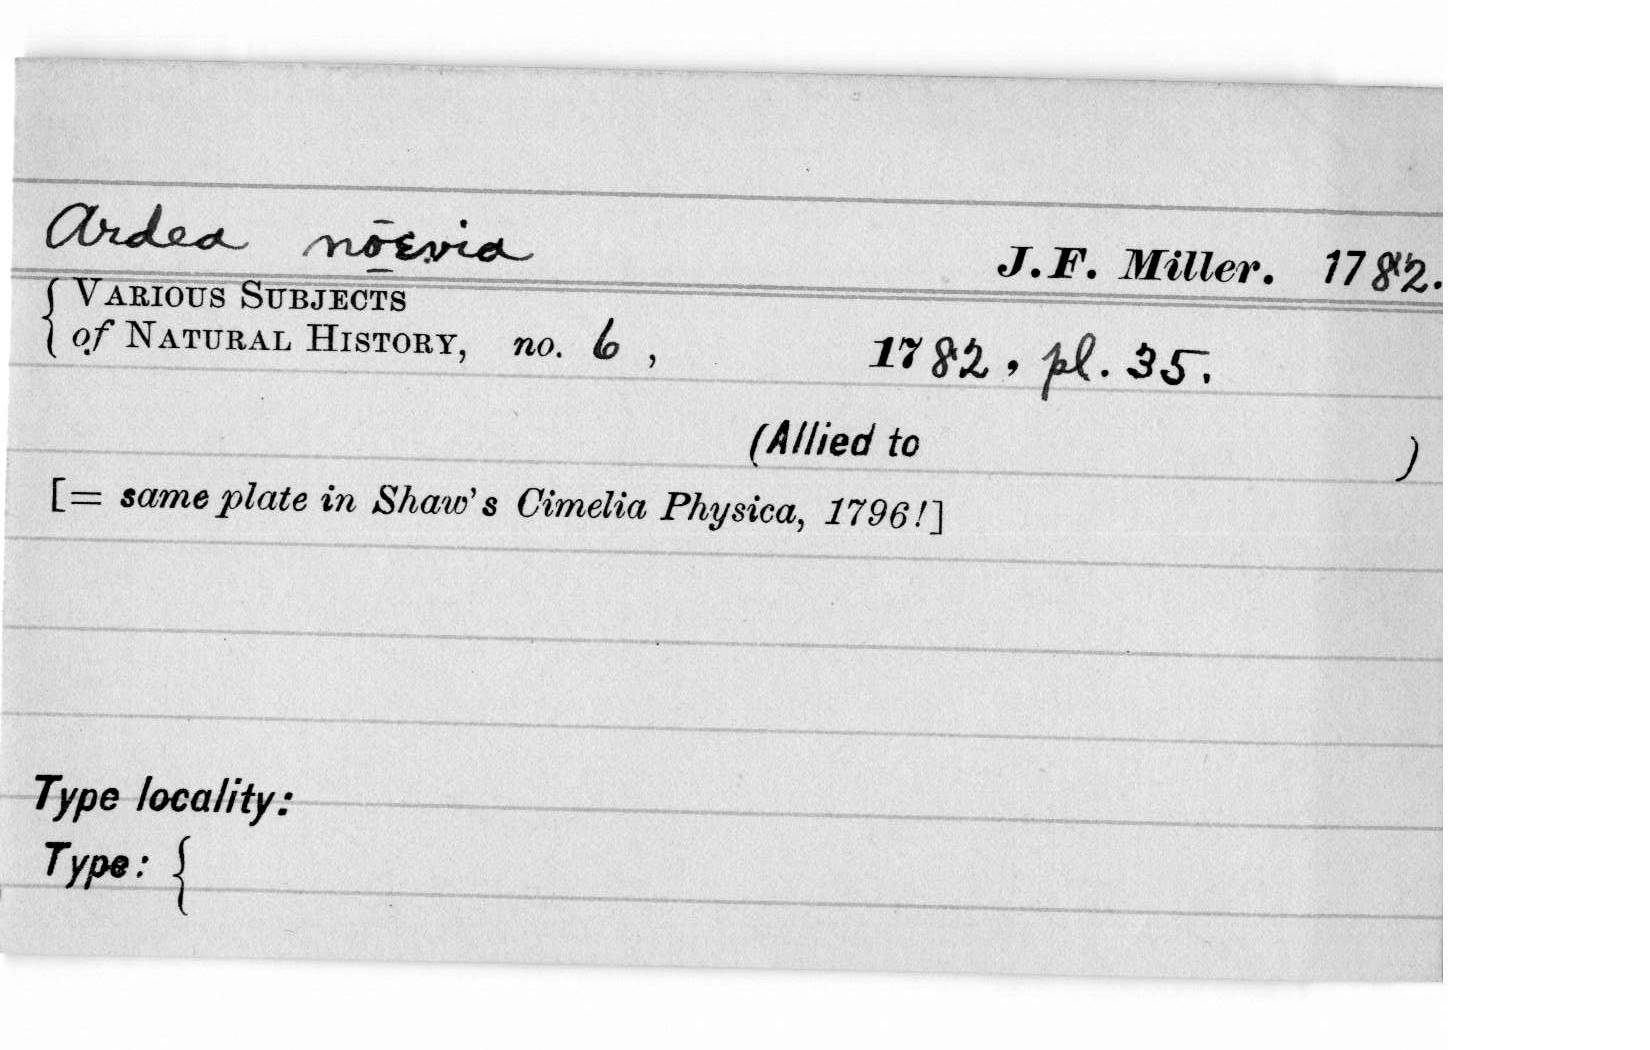 Ardea nœvia J.F. Miller. 1782.
{ VARIOUS SUBJECTS
of NATURAL HISTORY, no. 6, 1782, pl. 35.
(Allied to )
[= same plate in Shaw's Cimelia Physica, 1796!]
Type locality:
Type: {